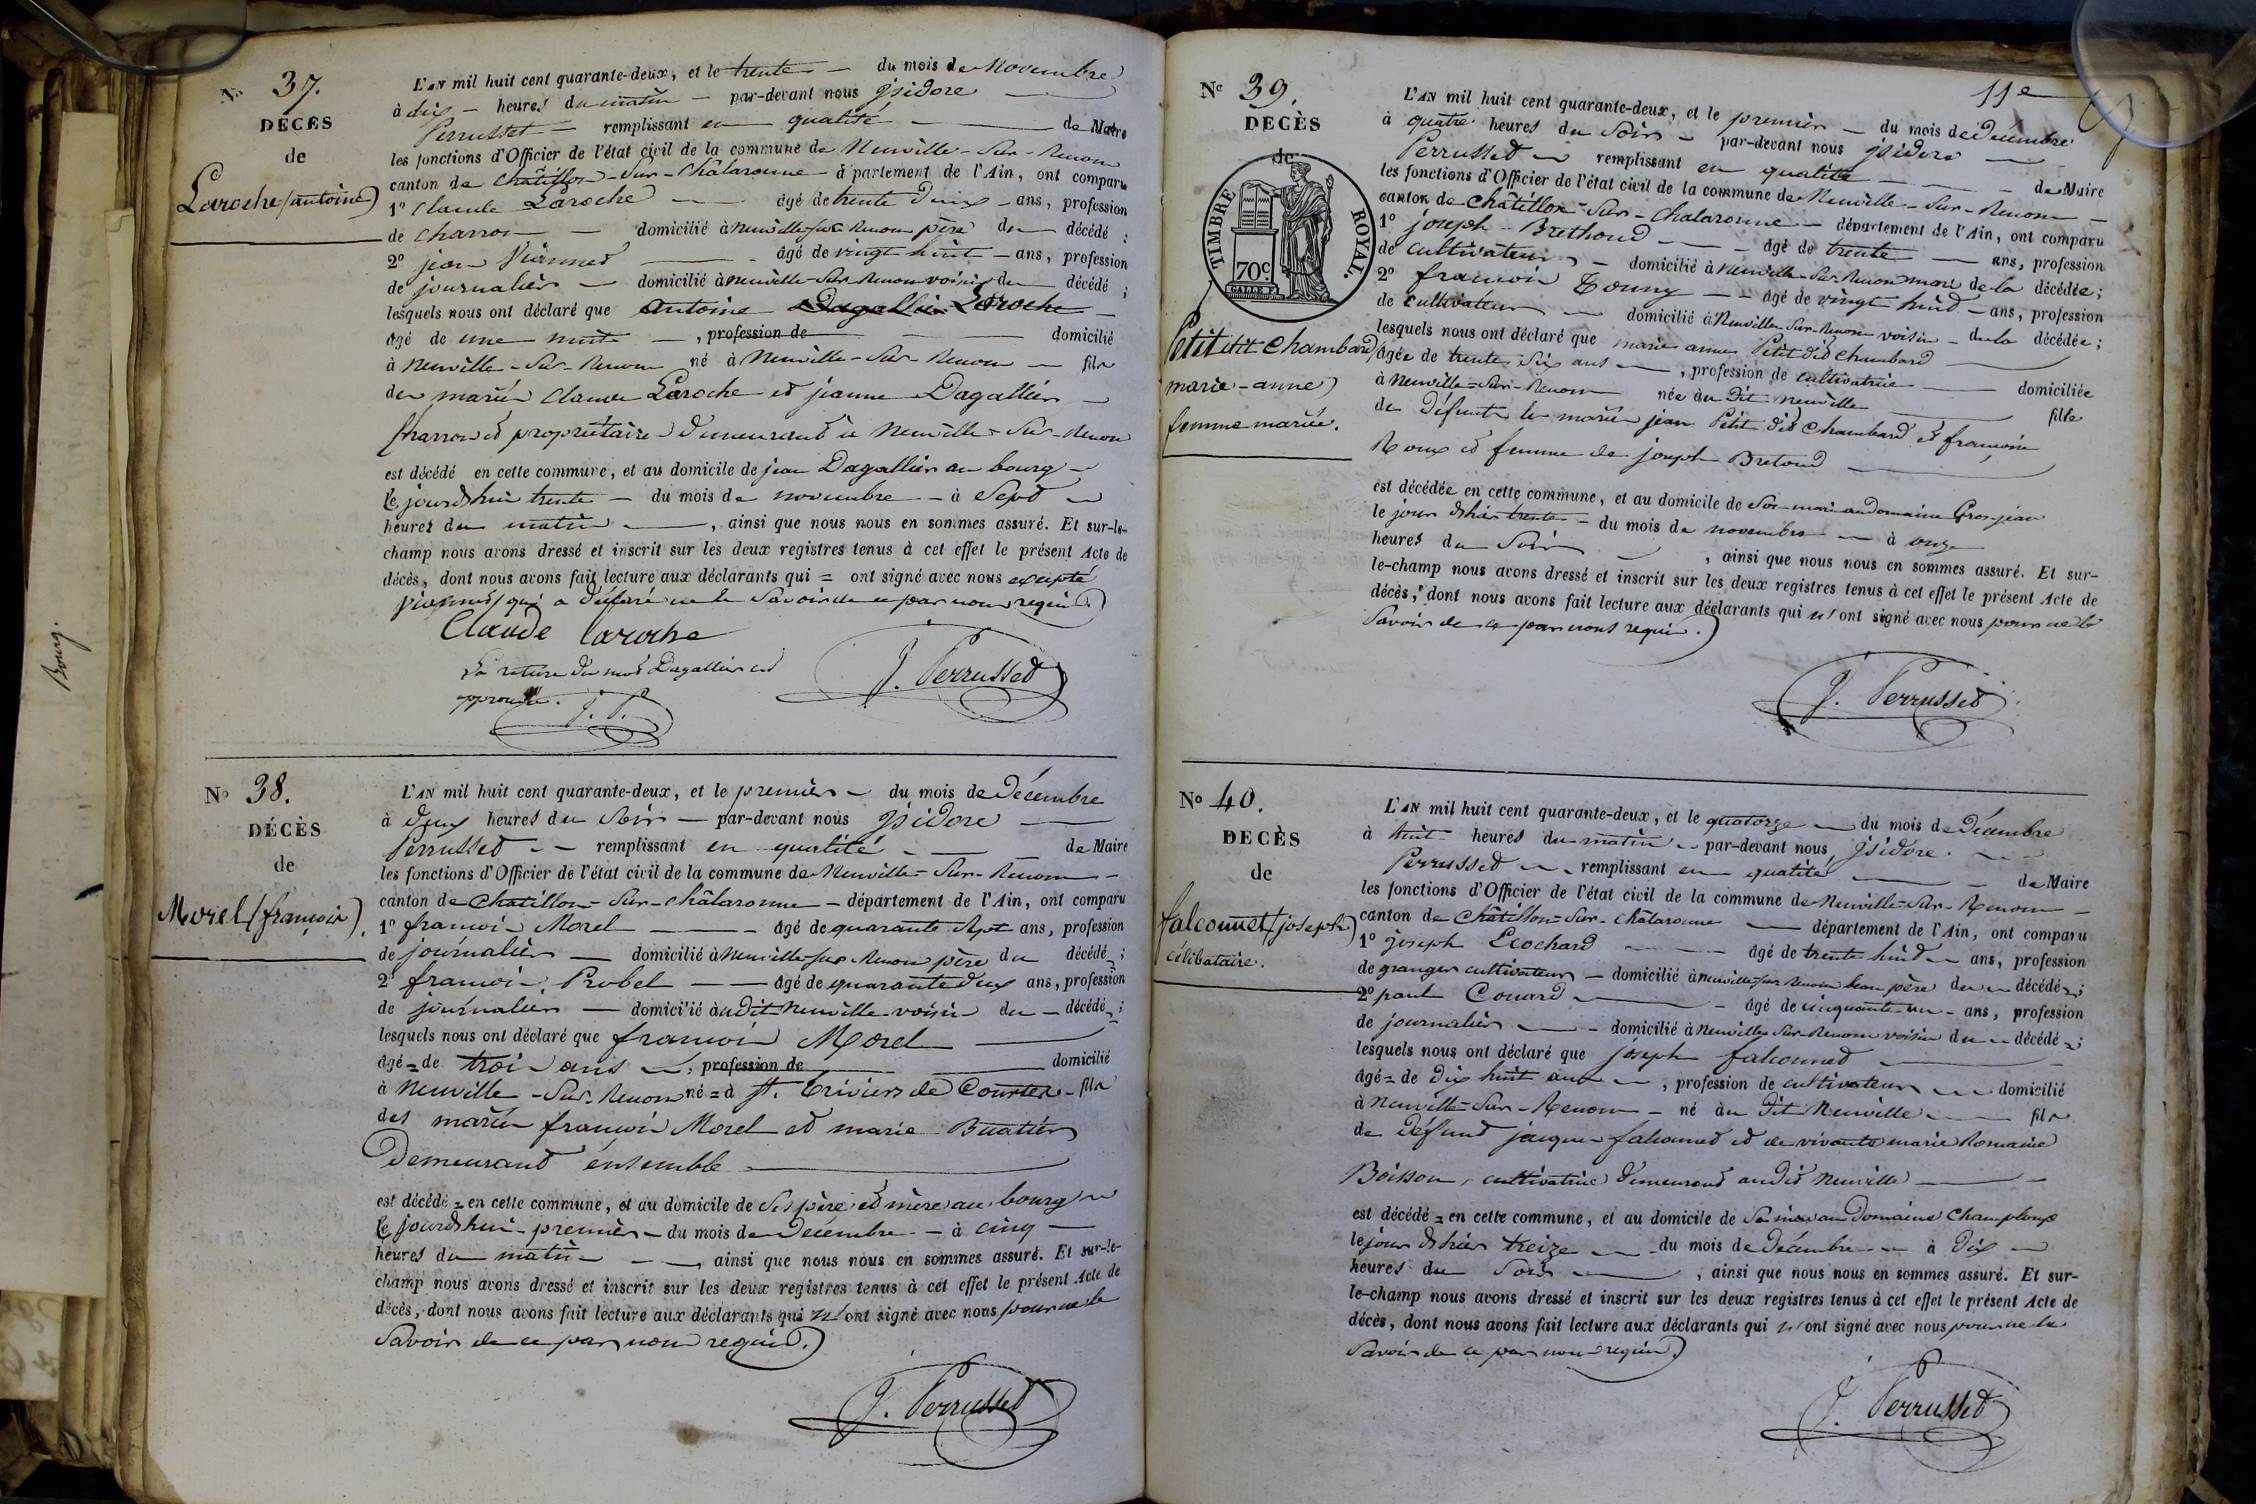 Bourg.
N° 37.
DÉCÈS
de
Laroche (antoine)
L'AN mil huit cent quarante-deux, et le trente du mois de Novembre
à dix heures du matin par-devant nous Isidore
Perrusset remplissant en qualité de Maire
les fonctions d'Officier de l'état civil de la commune de Neuville-Sur-Renom
canton de Châtillon-Sur-Châlaronne département de l'Ain, ont comparu
1° Claude Laroche âgé de trente deux ans, profession
de charron domicilié à neuville sur Renom père du décédé ;
2° jean Vianned âgé de vingt huit ans, profession
de journalier domicilié à neuville-Sur-Renom voisin du décédé ;
lesquels nous ont déclaré que Antoine Dagallier Laroche
âgé de une nuit, profession de domicilié
à Neuville-Sur-Renom né à Neuville-Sur-Renom fils
des mariés Claude Laroche et jeanne Dagallier
charron et propriétaire demeurand à Neuville-Sur-Renom
est décédé en cette commune, et au domicile de jean Dagallier au bourg
le jourd'hui trente du mois de novembre à Sept
heures du matin, ainsi que nous nous en sommes assuré. Et sur-le-
champ nous avons dressé et inscrit sur les deux registres tenus à cet effet le présent Acte de
décès, dont nous avons fait lecture aux déclarants qui = ont signé avec nous excepté
Vianned qui a déclaré ne le Savoir de ce par nous requis.
Claude laroche
La rature du mod Dagallier est
approuvée. J. P.
J. Perrussed
N° 38.
DÉCÈS
de
Morel (françois).
L'AN mil huit cent quarante-deux, et le premier du mois de Décembre
à deux heures du Soir par-devant nous Isidore
Perrussed remplissant en qualité de Maire
les fonctions d'Officier de l'état civil de la commune de Neuville-Sur-Renom
canton de Chatillon-Sur-Châlaronne département de l'Ain, ont comparu
1° françois Morel âgé de quarante Sept ans, profession
de journalier domicilié à Neuville sur Renom père du décédé ;
2° françois Probel âgé de quarante deux ans, profession
de journalier domicilié audit Neuville voisin du décédé ;
lesquels nous ont déclaré que françois Morel
âgé = de trois ans, profession de domicilié
à Neuville-Sur-Renom né = à St. Triviers de Courtes fils
des mariés françois Morel et marie Buatier
Demeurand ensemble
est décédé = en cette commune, et au domicile de Ses père et mère au bourg
le jourd'hui premier du mois de Décembre à cinq
heures du matin, ainsi que nous nous en sommes assuré. Et sur-le-
champ nous avons dressé et inscrit sur les deux registres tenus à cet effet le présent Acte de
décès, dont nous avons fait lecture aux déclarants qui n' ont signé avec nous pour ne le
Savoir de ce par nous requis.
J. Perrussed
11e
N° 39.
DÉCÈS
de
TIMBRE ROYAL.
70c
GALLE F.
Petit dit Chambard
marie-anne
femme mariée.
L'AN mil huit cent quarante-deux, et le premier du mois de Décembre
à quatre heures du Soir par-devant nous Isidore
Perrussed remplissant en qualité de Maire
les fonctions d'Officier de l'état civil de la commune de Neuville-Sur-Renom
canton de Châtillon-Sur-Chalaronne département de l'Ain, ont comparu
1° joseph Brethoud âgé de trente ans, profession
de cultivateur domicilié à Neuville-Sur-Renom mari de la décédée ;
2° françois Touny âgé de vingt huid ans, profession
de cultivateur domicilié à Neuville-Sur-Renom voisin de la décédée ;
lesquels nous ont déclaré que marie anne Petit did Chambard
âgée de trente Six ans, profession de cultivatrice domiciliée
à Neuville-Sur-Renom née au dit Neuville fille
de Défunts les mariés jean Petit did Chambard et françoise
Roux et femme de joseph Bretoud
est décédée en cette commune, et au domicile de Son mari au Domaine Grosjean
le jour d'hier trente du mois de novembre à onze
heures du Soir, ainsi que nous nous en sommes assuré. Et sur-
le-champ nous avons dressé et inscrit sur les deux registres tenus à cet effet le présent Acte de
décès, dont nous avons fait lecture aux déclarants qui n' ont signé avec nous pour ne le
Savoir de ce par nous requis.
J. Perrussed
N° 40.
DÉCÈS
de
falconnet (joseph)
célibataire.
L'AN mil huit cent quarante-deux, et le quatorze du mois de Décembre
à huit heures du matin par-devant nous Isidore
Perrussed remplissant en qualité de Maire
les fonctions d'Officier de l'état civil de la commune de Neuville-Sur-Renom
canton de Châtillon-Sur-Châlaronne département de l'Ain, ont comparu
1° joseph Ecochard âgé de trente huid ans, profession
de granger cultivateur domicilié à neuville sur Renom beau père du décédé ;
2° paul Couard âgé de cinquante-un ans, profession
de journalier domicilié à Neuville-Sur-Renom voisin du décédé ;
lesquels nous ont déclaré que joseph falconned
âgé = de Dix huit ans, profession de cultivateur domicilié
à Neuville-Sur-Renom né au dit Neuville fils
de Défund jacques falconned et de vivante marie Romaine
Boisson, cultivatrice demeurand au did Neuville
est décédé = en cette commune, et au domicile de Sa mère au Domaine Champloup
le jour d'hier treize du mois de Décembre à Dix
heures du Soir, ainsi que nous nous en sommes assuré. Et sur-
le-champ nous avons dressé et inscrit sur les deux registres tenus à cet effet le présent Acte de
décès, dont nous avons fait lecture aux déclarants qui n' ont signé avec nous pour ne le
Savoir de ce par nous requis
J. Perrussed